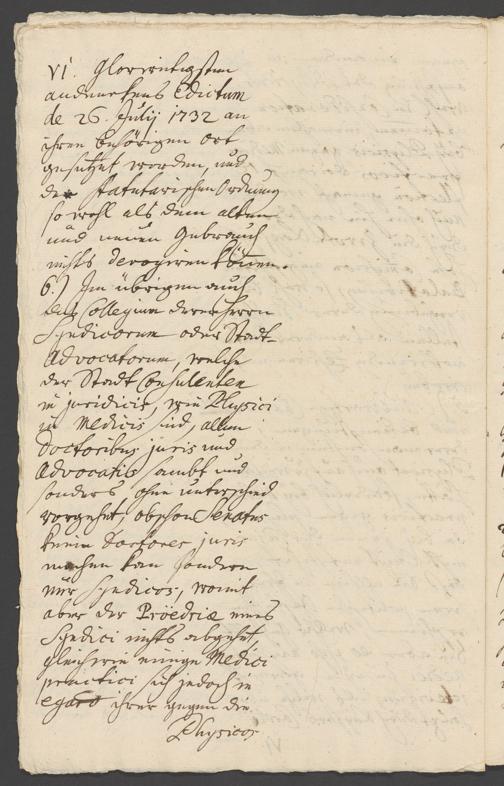 VI. Glorwürdigsten
andenckens Edictum
de 26. Julij 1732 an
ihren behörigen ort
gesetzet worden, und
der Statutarischen Ordnung
so wohl als dem alten
und neuen Gebrauch
nichts derogiren können.
6.) Im übrigen auch
das Collegium derer Herrn
Syndicorum oder Stadt-
Advocatorum, welche
der Stadt Consulenten
in juridicis, wie Physici
in Medicis sind, allen
Doctoribus juris und
Advocatis sambt und
sonders, ohne unterschied
vorgehet, obschon Senatus
keine Doctores juris
machen kan sondern
nur Syndicos, womit
aber der Proëdriæ eines
Syndici nichts abgehet,
gleichwie einige Medici
practici sich jedoch in
egard ihrer gegen die
Physicos